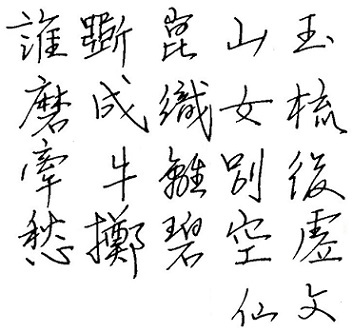 誰斲崑山玉
磨成織女梳
牽牛離別後
愁擲碧空虛
仙文